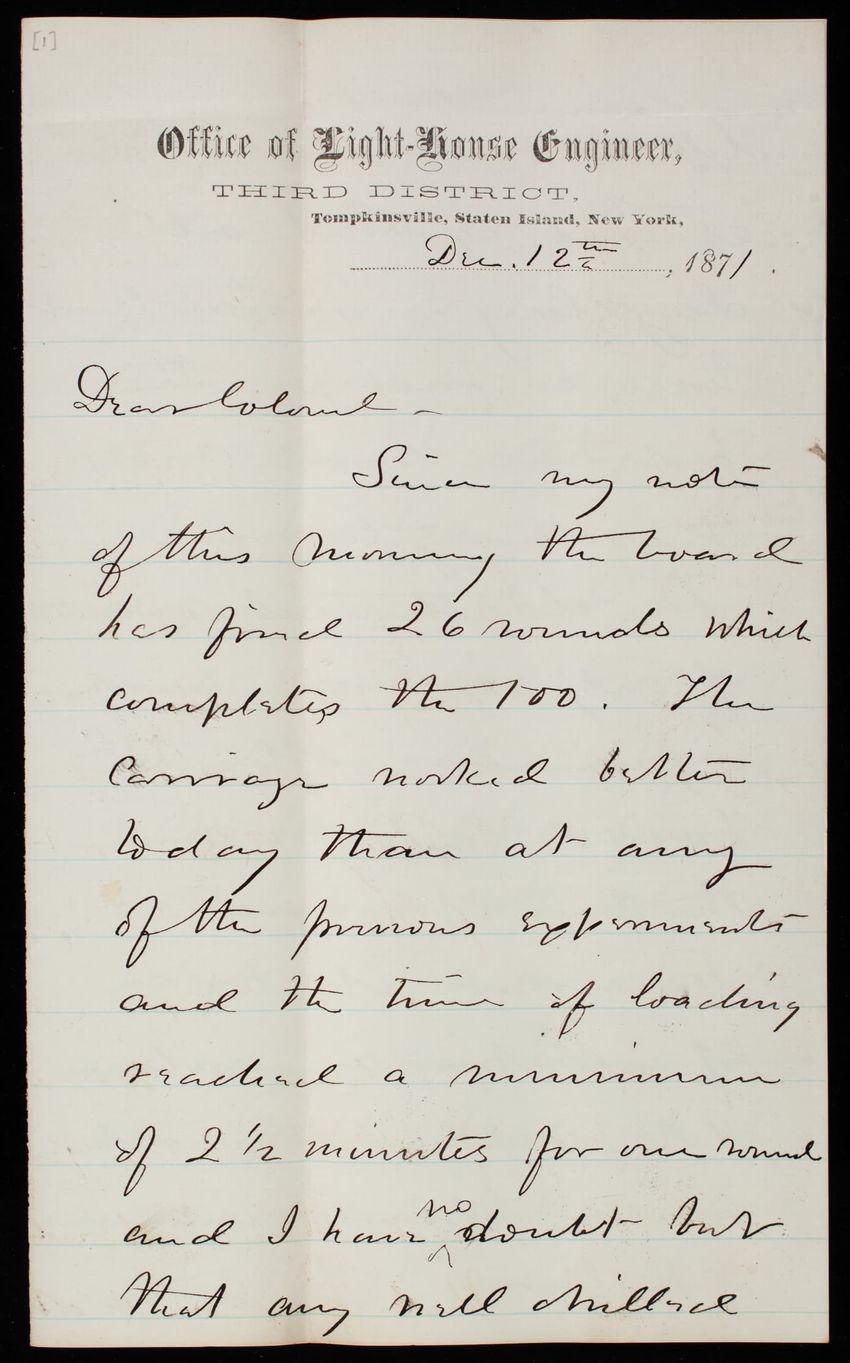 [1]
Office of Light-House Engineer,
THIRD DISTRICT,
Tompkinsville, Staten Island, New York,
Dec. 12th, 1871.
Dear Colonel -
Since my note
of this morning the board
has fired 26 rounds which
completes the 100. The
Carriage worked better
today than at any
of the previous experiments
and the time of loading
reached a minimum
of 2 1/2 minutes for one round
and I have no doubt but
that any well drilled